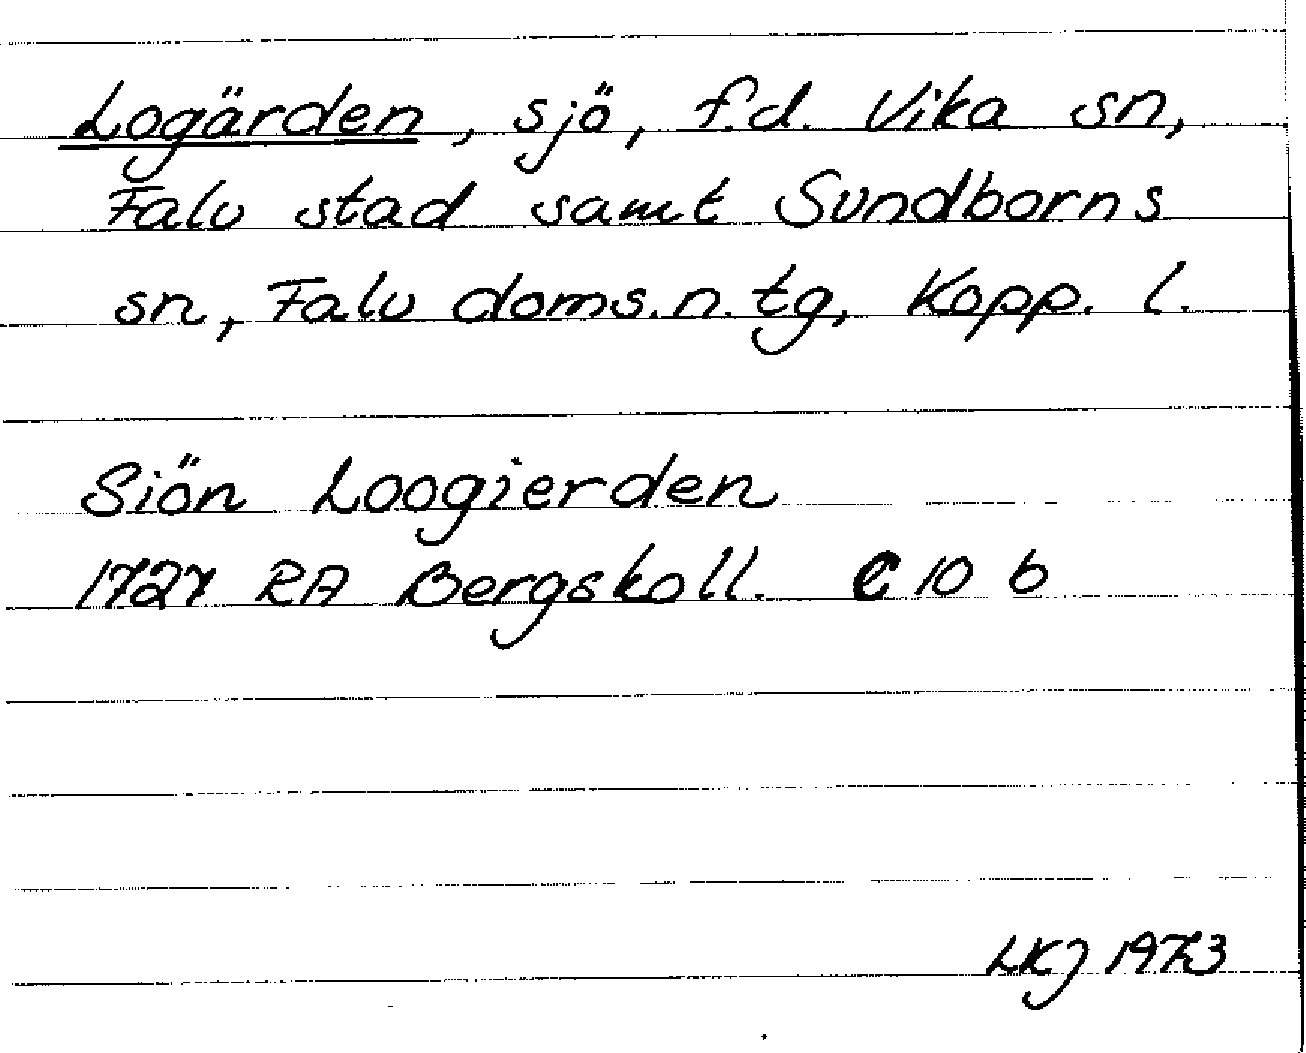 Logärden, sjö, f.d. Vika sn,
Falu stad samt Sundborns
sn, Falu doms.n. tg, Kopp. l.
Siön Loogierden
1727 RA Bergskoll. E 10 b
LKJ 1973